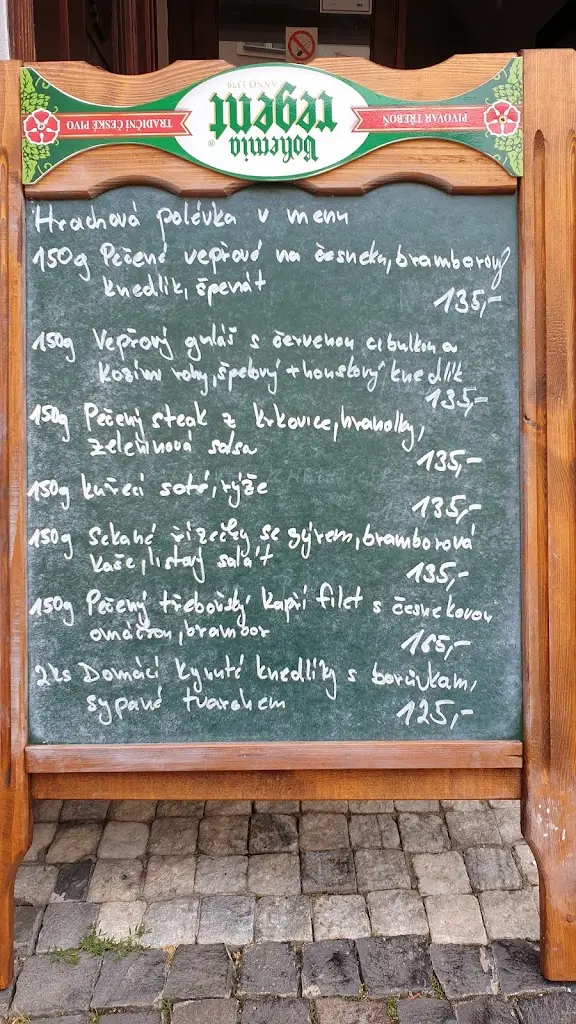 bohemia
regent®
ANNO 1379
PIVOVAR TŘEBOŇ
TRADIČNÍ ČESKÉ PIVO
Hrachová polévka v menu
150g Pečené vepřové na česneku, bramborový
knedlík, špenát
135,-
150g Vepřový guláš s červenou cibulkou a
kozími rohy, špekový + houskový knedlík
135,-
150g Pečený steak z krkovice, hranolky,
zeleninová salsa
135,-
150g kuřecí soté, rýže
135,-
150g Sekané řízečky se sýrem, bramborová
kaše, listový salát
135,-
150g Pečený třeboňský kapří filet s česnekovou
omáčkou, brambor
165,-
2ks Domácí kynuté knedlíky s borůvkami,
sypané tvarohem
125,-